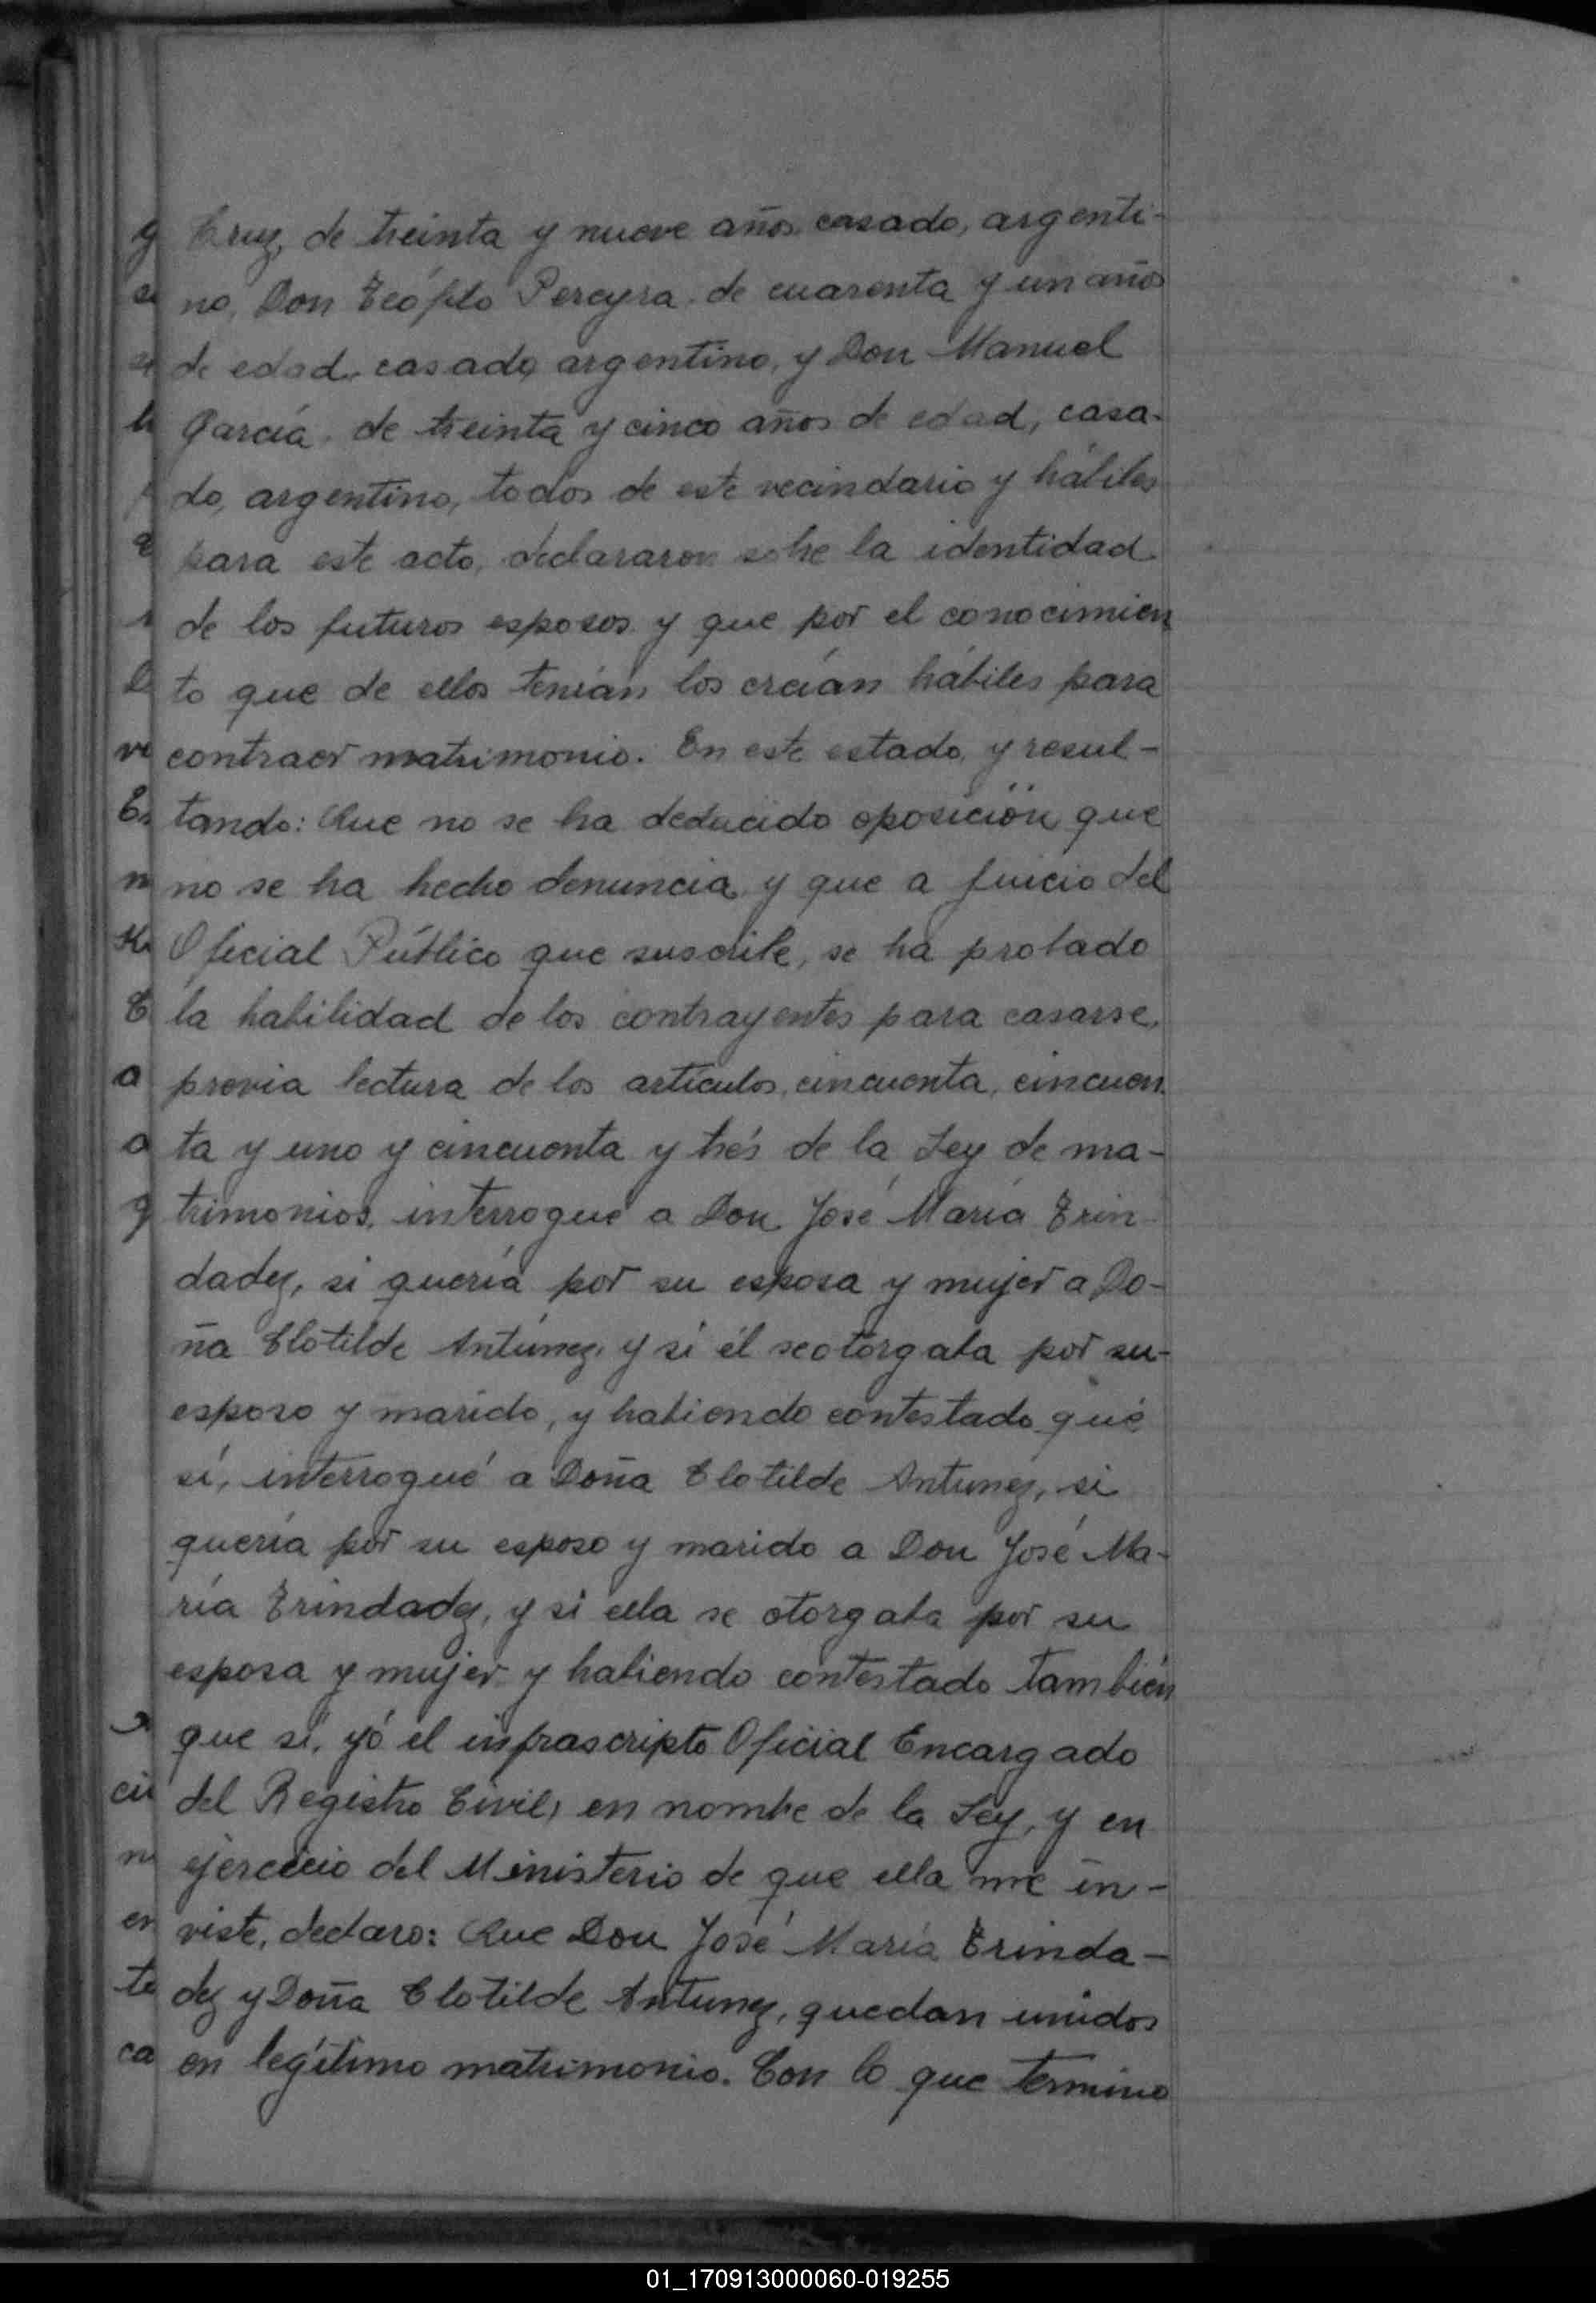 Cruz, de treinta y nueve años casado, argenti-
no, Don Teófilo Pereyra de cuarenta y un años
de edad, casado, argentino, y Don Manuel
García, de treinta y cinco años de edad, casa-
do, argentino, todos de este vecindario y hábiles
para este acto, declararon sobre la identidad
de los futuros esposos y que por el conocimien
to que de ellos tenían los creían hábiles para
contraer matrimonio. En este estado, y resul-
tando: Que no se ha deducido oposición, que
no se ha hecho denuncia y que a juicio del
Oficial Público que suscribe, se ha probado
la habilidad de los contrayentes para casarse,
previa lectura de los artículos, cincuenta, cincuen
ta y uno y cincuenta y trés de la Ley de ma-
trimonios, interrogué a Don José María Trin-
dadez, si quería por su esposa y mujer a Do-
ña Clotilde Antúnez, y si él se otorgaba por su-
esposo y marido, y habiendo contestado qué
sí, interrogué a Doña Clotilde Antunez, si
quería por su esposo y marido a Don José Ma-
ría Trindadez, y si ella se otorgaba por su
esposa y mujer y habiendo contestado también
que sí, yó el infrascripto Oficial Encargado
del Registro Civil, en nombre de la Ley, y en
ejercicio del Ministerio de que ella me in-
viste, declaro: Que Don José María Trinda-
dez y Doña Clotilde Antunez, quedan unidos
en legítimo matrimonio. Con lo que termino
01_170913000060-019255